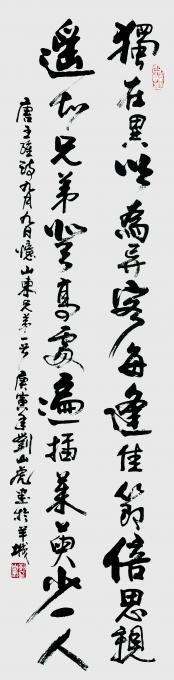 獨在異鄉為異客每逢佳節倍思親
遥知兄弟登高處遍插茱萸少一人
唐王維詩九月九日憶山東兄弟一首 庚寅年劉山虎書於羊城